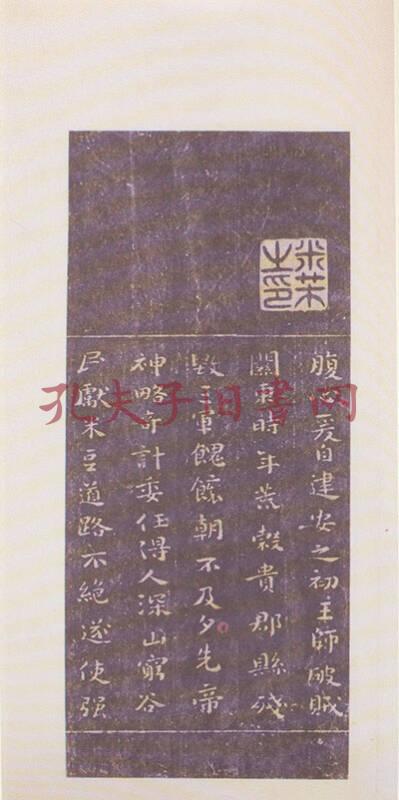 米芾
之印
腹心爰自建安之初王師破賊
關東時年荒穀貴郡縣殘
毀三軍餽饟朝不及夕先帝
神略奇計委任得人深山窮谷
民獻米豆道路不絕遂使强
孔夫子旧书网